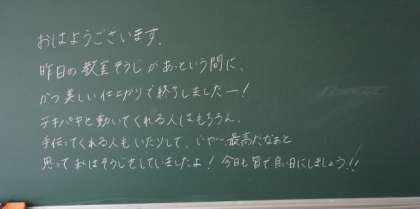 おはようございます。
昨日の教室そうじがあっという間に、
かつ美しい仕上がりで終了しましたー!
テキパキと動いてくれる人はもちろん、
手伝ってくれる人もいたりして、じゃ〜最高だなぁと
思っておはそうじをしていましたよ!今日も皆で良い日にしましょう!!